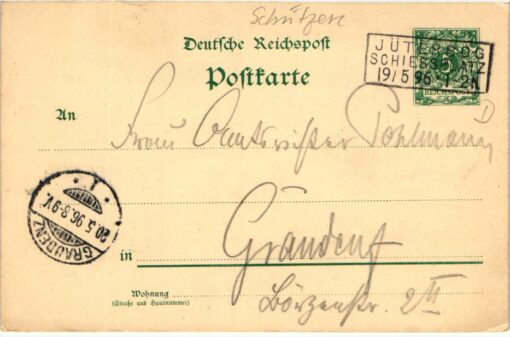 Schützen
Deutsche Reichspost
Postkarte
JÜTERBOG
SCHIESSPLATZ
19/5 96 1-2N
REICHSPOST
An
Frau Amtsrichter Pohlmann
GRAUDENZ
20.5.96.8-9V.
in
Graudenz
Wohnung
(Straße und Hausnummer)